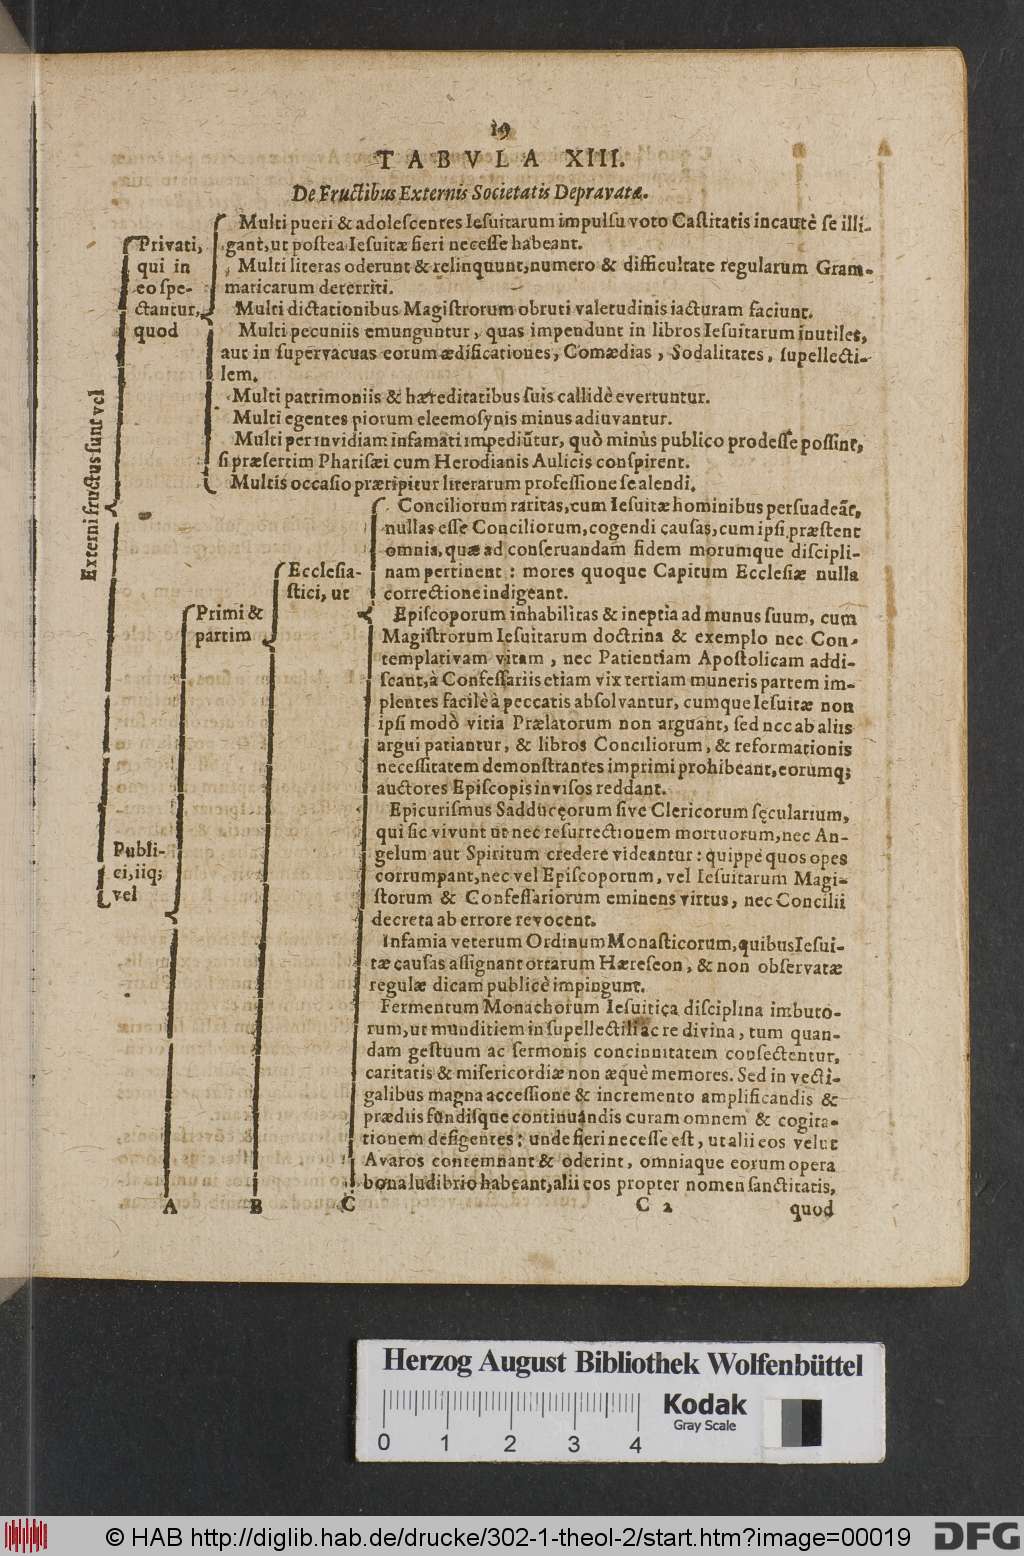 19
TABVLA XIII.
De Fructibus Externis Societatis Depravatæ.
Externi fructus sunt vel
Privati,
qui in
eo spe-
ctantur,
quod
Multi pueri & adolescentes Iesuitarum impulsu voto Castitatis incautè se illi-
gant, ut postea Iesuitæ fieri necesse habeant.
Multi literas oderunt & relinquunt, numero & difficultate regularum Gram-
maticarum deterriti.
Multi dictationibus Magistrorum obruti valetudinis iacturam faciunt.
Multi pecuniis emunguntur, quas impendunt in libros Iesuitarum inutiles,
aut in supervacuas eorum ædificationes, Comædias, Sodalitates, supellecti-
lem.
Multi patrimoniis & hæreditatibus suis callidè evertuntur.
Multi egentes piorum eleemosynis minus adiuvantur.
Multi per invidiam infamati impediūtur, quò minùs publico prodesse possint,
si præsertim Pharisæi cum Herodianis Aulicis conspirent.
Multis occasio præripitur literarum professione se alendi.
Publi-
ci, iiq;
vel
Primi &
partim
Ecclesia-
stici, ut
Conciliorum raritas, cum Iesuitæ hominibus persuadeāt,
nullas esse Conciliorum, cogendi causas, cum ipsi præstent
omnia, quæ ad conseruandam fidem morumque discipli-
nam pertinent : mores quoque Capitum Ecclesiæ nulla
correctione indigeant.
Episcoporum inhabilitas & ineptia ad munus suum, cum
Magistrorum Iesuitarum doctrina & exemplo nec Con-
templativam vitam, nec Patientiam Apostolicam addi-
scant, à Confessariis etiam vix tertiam muneris partem im-
plentes facilè à peccatis absolvantur, cumque Iesuitæ non
ipsi modò vitia Prælatorum non arguant, sed nec ab aliis
argui patiantur, & libros Conciliorum, & reformationis
necessitatem demonstrantes imprimi prohibeant, eorumq;
auctores Episcopis invisos reddant.
Epicurismus Sadduceorum sive Clericorum sęcularium,
qui sic vivunt ut nec resurrectionem mortuorum, nec An-
gelum aut Spiritum credere videantur : quippe quos opes
corrumpant, nec vel Episcoporum, vel Iesuitarum Magi-
storum & Confessariorum eminens virtus, nec Concilii
decreta ab errore revocent.
Infamia veterum Ordinum Monasticorum, quibus Iesui-
tæ causas assignant ortarum Hæreseon, & non observatæ
regulæ dicam publicè impingunt.
Fermentum Monachorum Iesuitica disciplina imbuto-
rum, ut munditiem in supellectili ac re divina, tum quan-
dam gestuum ac sermonis concinnitatem consectentur,
caritatis & misericordiæ non æquè memores. Sed in vecti-
galibus magna accessione & incremento amplificandis &
prædiis fundisque continuandis curam omnem & cogita-
tionem defigentes : unde fieri necesse est, ut alii eos velut
Avaros contemnant & oderint, omniaque eorum opera
bona ludibrio habeant, alii eos propter nomen sanctitatis,
A B C
C 2 quod
Herzog August Bibliothek Wolfenbüttel
Kodak
Gray Scale
0 1 2 3 4
© HAB http://diglib.hab.de/drucke/302-1-theol-2/start.htm?image=00019
DFG